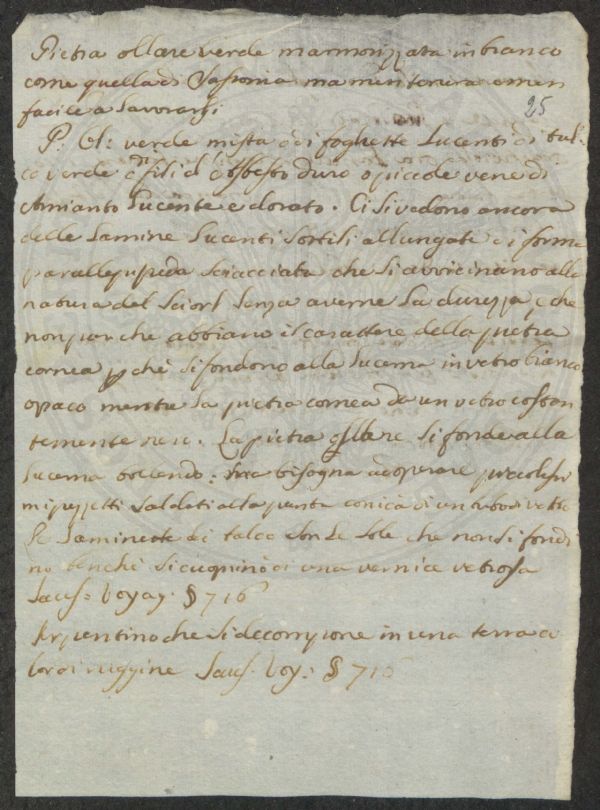 Pietra ollare verde marmorizzata in bianco
come quella di Sassonia ma men tenera e men
facile a lavorarsi
25
P. Ol: verde mista di foghette lucenti di tal-
co verde fili d'asbesto duro o piccole vene di
Amianto lucente e dorato. Ci si vedono ancora
delle lamine lucenti sottili allungate di forma
parallepipeda sciacciata che si avvicinano alla
natura del Sciorl senza averne la durezza, e che
non par che abbiano il carattere della pietra
cornea pchè si fondono alla lucerna in vetro bianco
opaco mentre la pietra cornea dà un vetro costan
temente nero. La pietra ollare si fonde alla
lucerna bollendo: bisogna adoperare piccolissi
mi pezzetti saldati alla punta conica di un tubo di vetro
Le laminette di talco son le sole che non si fondo
no benchè si cuoprino di una vernice vetrosa
Saus= Voyag. § 716
Serpentino che si decompone in una terra co
lor di ruggine Saus= Voy: § 715